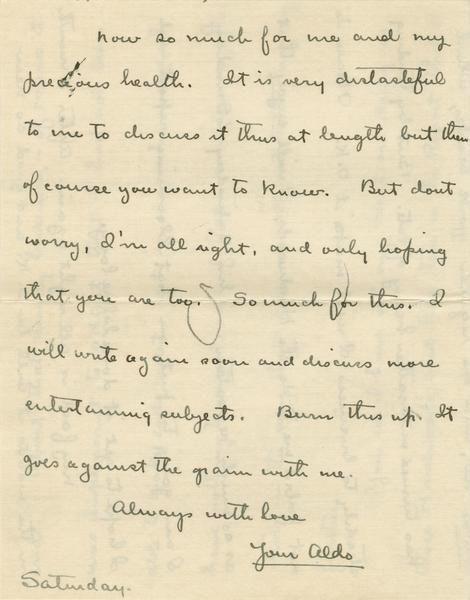 Now so much for me and my
precious health. It is very distasteful
to me to discuss it thus at length but then
of course you want to know. But dont
worry, I'm all right, and only hoping
that you are too. So much for this. I
will write again soon and discuss more
entertaining subjects. Burn this up. It
goes against the grain with me.
Always with love
Your Aldo
Saturday.